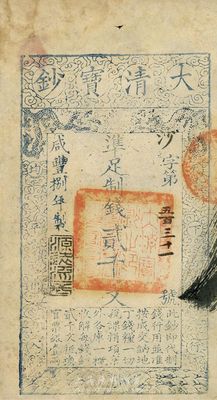 大清寶鈔
沙字第五百三十一號
準足制錢貳千文
咸豐捌年製
此鈔即代制
錢行用並准
按成交納地
丁錢糧一切
稅課捐項京
外各庫一概
收解每錢鈔
貳千文抵換
官票銀壹兩
源遠流長